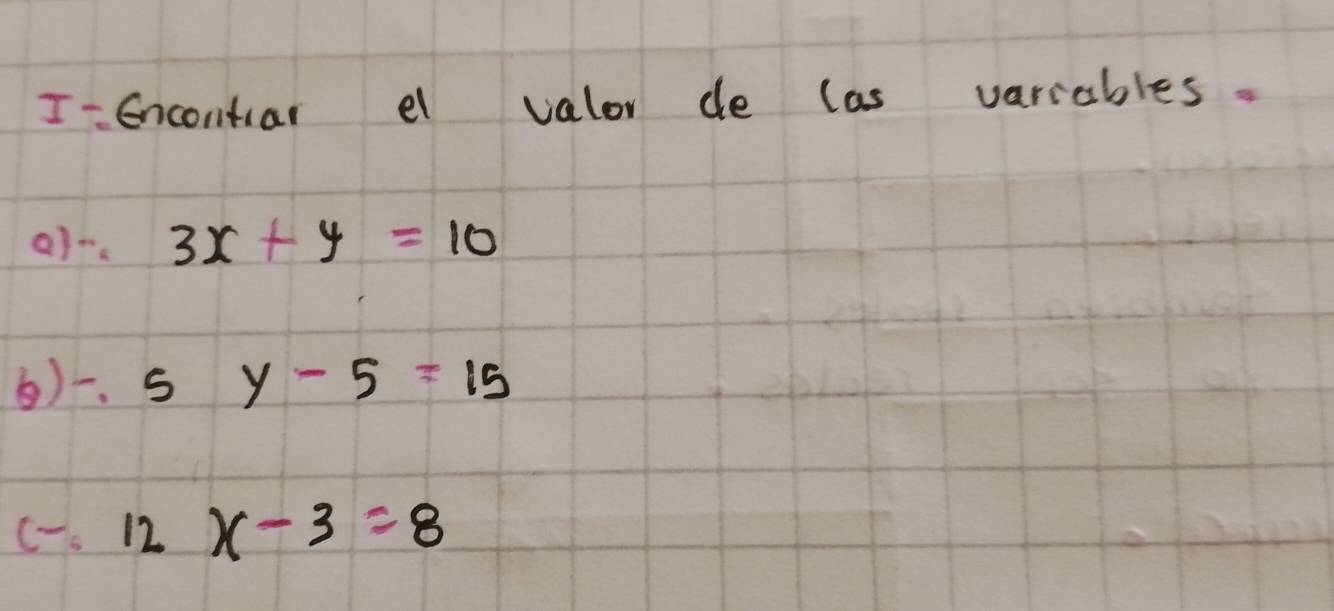 I-. Encontrar el valor de las variables.
a)-. 3x + y = 10
b)-. 5 y - 5 = 15
c-. 12 x - 3 = 8